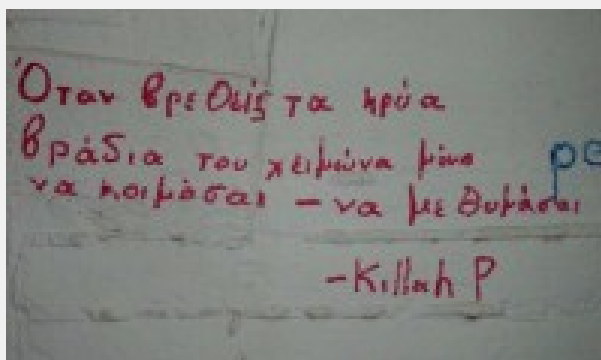 Όταν βρεθείς τα κρύα
βράδια του χειμώνα μόνο
να κοιμάσαι - να με θυμάσαι
-Killah P
ρε